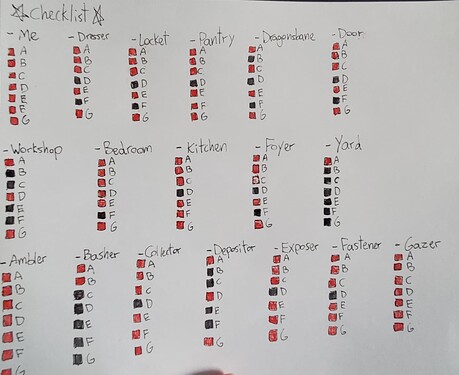 ☆ Checklist ☆
- Me - Dresser - Locket - Pantry - Dragonsbane - Door
A A A A A A
B B B B B B
C C C C C C
D D D D D D
E E E E E E
F F F F F F
G G G G G G
- Workshop - Bedroom - Kitchen - Foyer - Yard
A A A A A
B B B B B
C C C C C
D D D D D
E E E E E
F F F F F
G G G G G
- Ambler - Basher - Collector - Depositor - Exposer - Fastener - Gazer
A A A A A A A
B B B B B B B
C C C C C C C
D D D D D D D
E E E E E E E
F F F F F F F
G G G G G G G